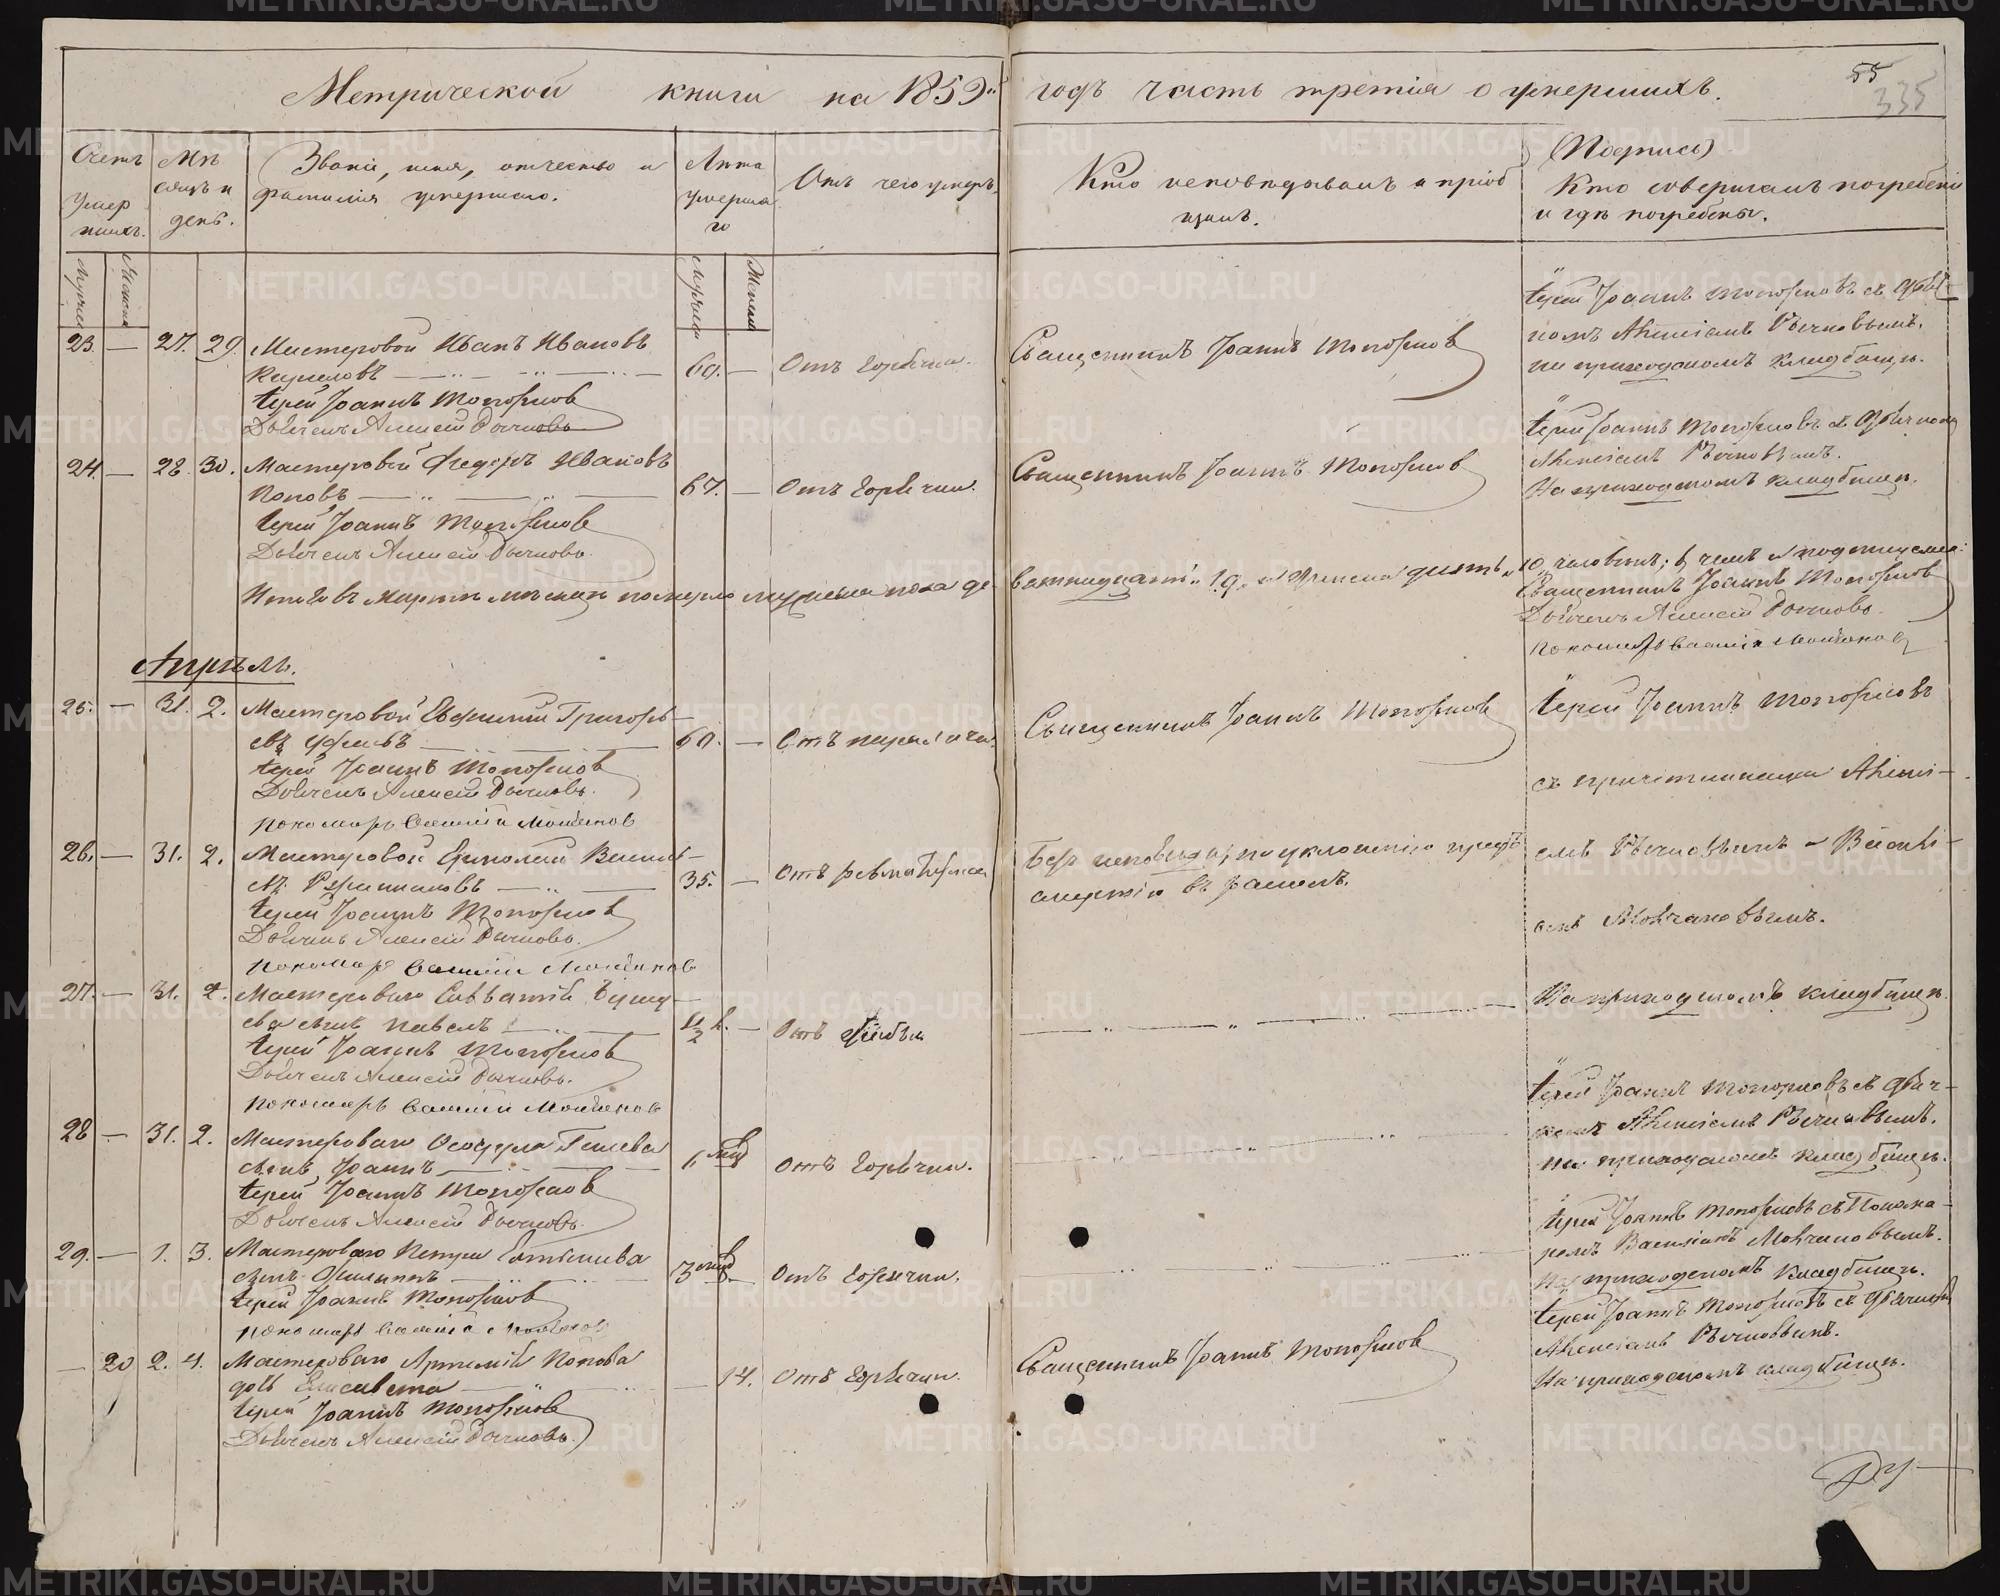 Метрической книги на 1859й годъ часть третiя о умершихъ.
55
335
Счетъ умер шихъ.
Мѣ сяцъ и день.
Званiе, имя, отчество и фамилiя умершаго.
Лѣта умерша го
Отъ чего умеръ.
Кто исповѣдывалъ и прiоб щалъ.
(Подпись) Кто совершалъ погребенiе и гдѣ погребены.
Мужеска
Женска
Мужеска
Женска
23. — 27. 29. Мастеровой Иванъ Ивановъ
60. — Отъ горячки. Священникъ Iоаннъ Топорковъ
Iерей Iоаннъ Топорковъ съ Дьяч-
комъ Алексiемъ Рычковымъ.
на приходскомъ кладбищѣ.
Iерей Iоаннъ Топорковъ
Дьячекъ Алексей Рычковъ
24. — 28. 30. Мастеровой Федоръ Ивановъ
Поповъ 67. — Отъ горячки. Священникъ Iоаннъ Топорковъ
Iерей Iоаннъ Топорковъ съ Дьячкомъ
Алексiемъ Рычковымъ.
На приходскомъ кладбищѣ.
Iерей Iоаннъ Топорковъ
Дьячекъ Алексей Рычковъ.
Итого въ Мартѣ мѣсяцѣ померло мужеска пола де- вятнадцать „19„ и женска десять „10„ человѣкъ; въ чемъ и подписуемся:
Священникъ Iоаннъ Топорковъ
Дьячекъ Алексей Рычковъ.
Пономарь Василiй Молчановъ
Апрѣль.
25. — 31. 2. Мастеровой Евфимiй Григорь-
евъ 60. — Отъ паралича. Священникъ Iоаннъ Топорковъ
Iерей Iоаннъ Топорковъ
съ причетниками Алексi-
Iерей Iоаннъ Топорковъ
Дьячекъ Алексей Рычковъ.
Пономарь Василiй Молчановъ
26. — 31. 2. Мастеровой Ермолай Василь-
евъ 35. — Отъ ревматизма Безъ исповѣди, по уклоненiю предъ
смертiю въ расколъ.
емъ Рычковымъ и Василi-
емъ Молчановымъ.
Iерей Iоаннъ Топорковъ
Дьячекъ Алексей Рычковъ.
Пономарь Василiй Молчановъ
27. — 31. 2. Мастероваго
сынъ Павелъ — Отъ
На приходскомъ кладбищѣ.
Iерей Iоаннъ Топорковъ
Дьячекъ Алексей Рычковъ.
Пономарь Василiй Молчановъ
28 — 31. 2. Мастероваго
сынъ Iоаннъ 6 Отъ горячки.
Iерей Iоаннъ Топорковъ съ Дьяч-
комъ Алексiемъ Рычковымъ.
на приходскомъ кладбищѣ.
Iерей Iоаннъ Топорковъ
Дьячекъ Алексей Рычковъ.
29. — 1. 3. Мастероваго Петра
сынъ Филиппъ 3 Отъ горячки.
Iерей Iоаннъ Топорковъ съ Понома-
ремъ Василiемъ Молчановымъ.
На приходскомъ кладбищѣ.
Iерей Iоаннъ Топорковъ
Пономарь Василiй Молчановъ
— 20 2. 4. Мастероваго Артемiя Попова
дочь Елисавета 14. Отъ горячки. Священникъ Iоаннъ Топорковъ
Iерей Iоаннъ Топорковъ съ Дьячкомъ
Алексiемъ Рычковымъ.
На приходскомъ кладбищѣ.
Iерей Iоаннъ Топорковъ
Дьячекъ Алексей Рычковъ.
METRIKI.GASO-URAL.RU